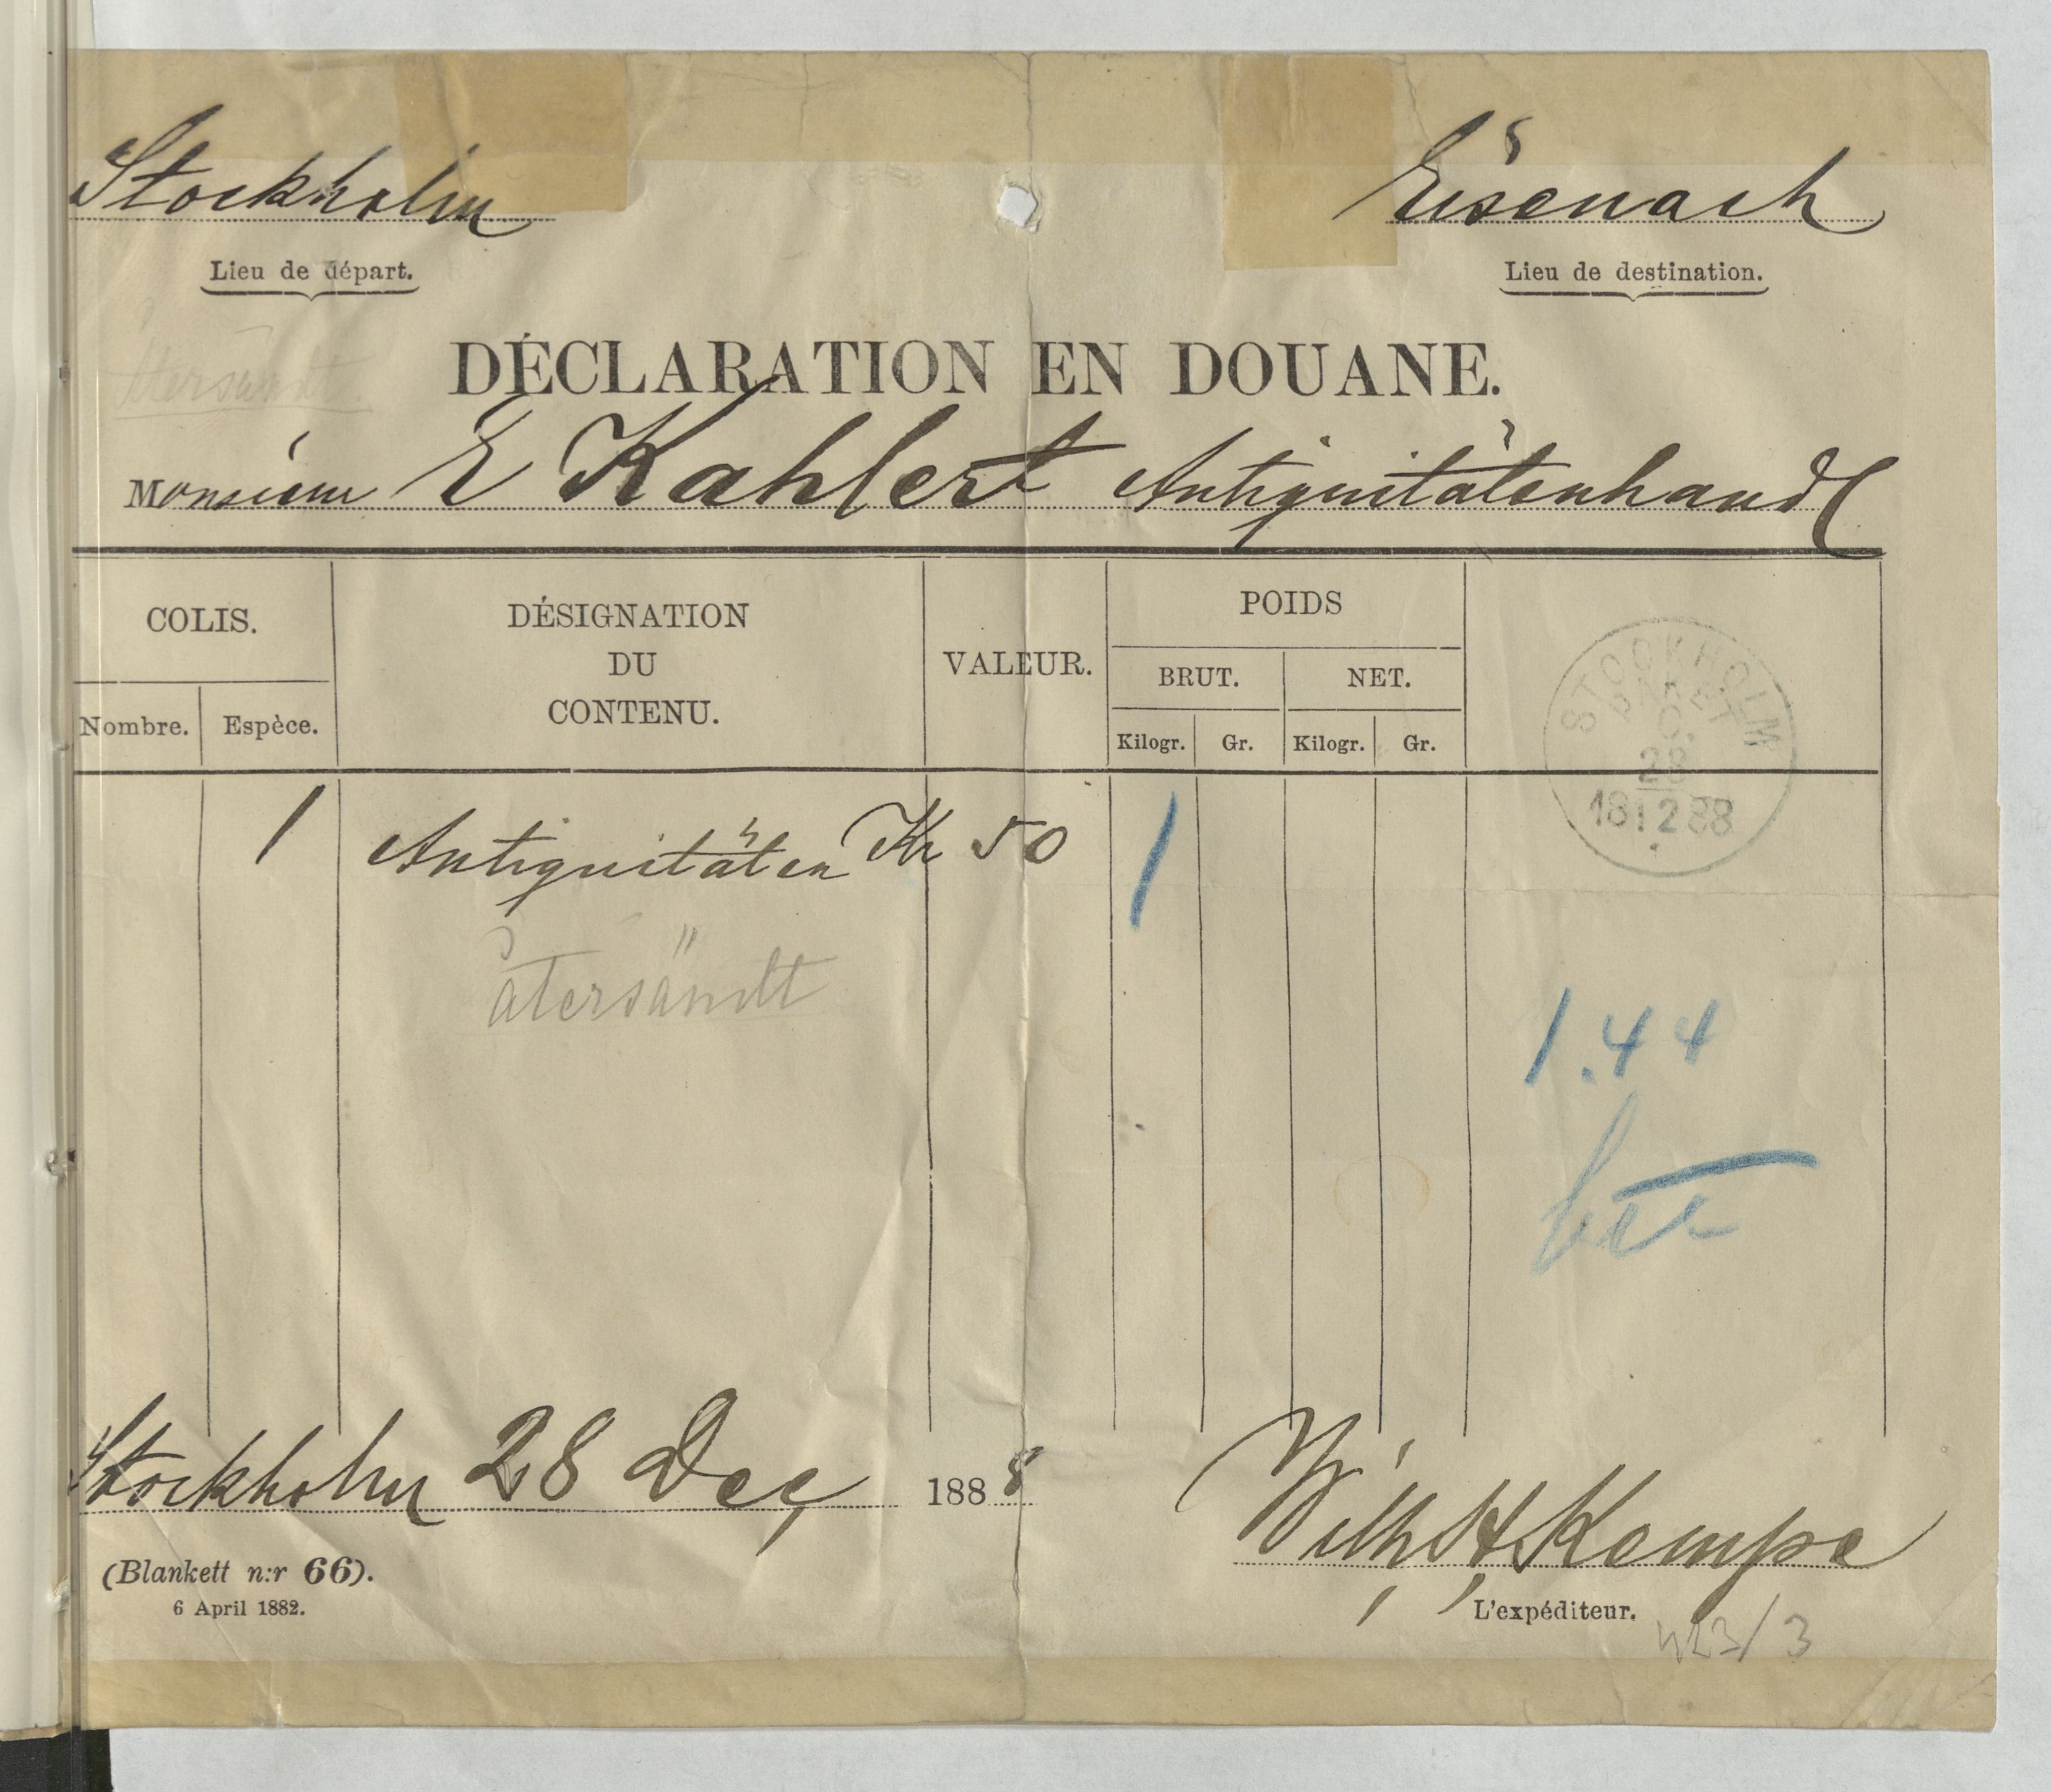 Stockholm
Lieu de départ.
Eisenach
Lieu de destination.
DÉCLARATION EN DOUANE.
återsändt.
Monsieur E Kahlert Antiquitätenhandl
COLIS.
Nombre. Espèce.
DÉSIGNATION
DU
CONTENU.
VALEUR.
POIDS
BRUT. NET.
Kilogr. Gr. Kilogr. Gr.
STOCKHOLM
PAKET
C.
28
18 12 88
1 Antiquitäten Kr 50 1
återsändt
1.44
Stockholm 28 Dec 1888
Wilh. H. Kempe
L'expéditeur.
(Blankett n:r 66).
6 April 1882.